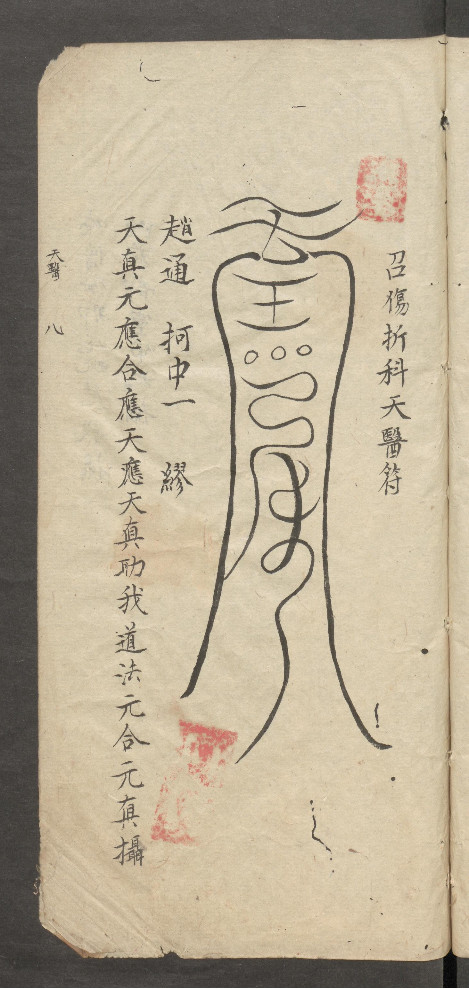 召傷折科天醫符
趙通 柯中一 繆
天真元應合應天應天真助我道法元合元真攝
天醫 八